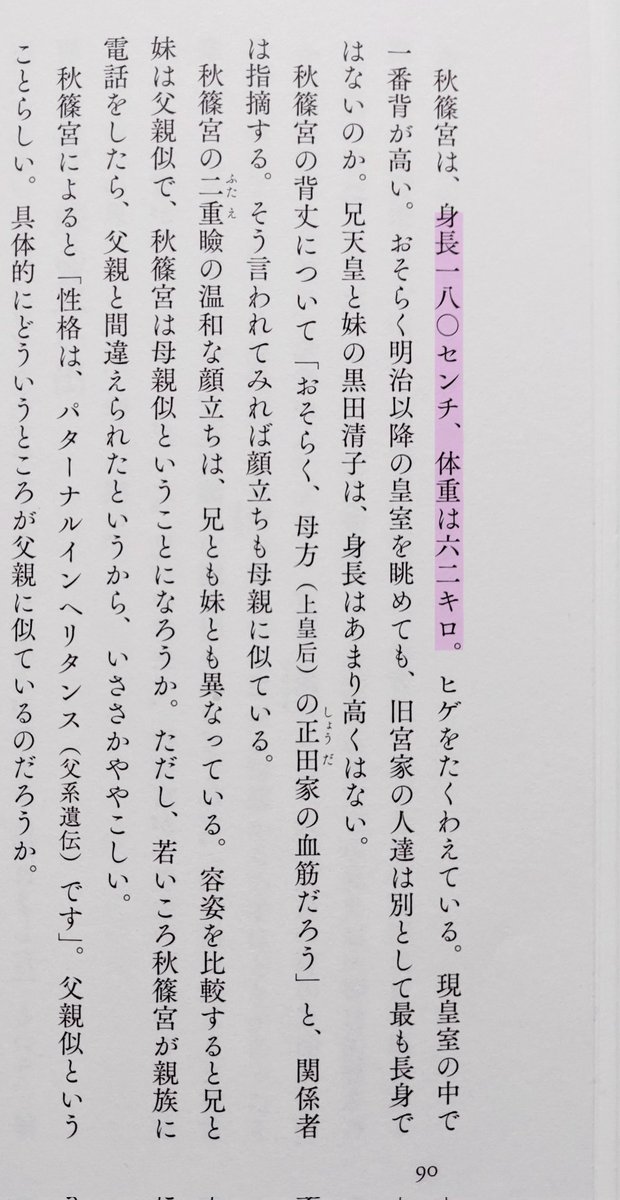 秋篠宮は、身長一八〇センチ、体重は六二キロ。ヒゲをたくわえている。現皇室の中で
一番背が高い。おそらく明治以降の皇室を眺めても、旧宮家の人達は別として最も長身で
はないのか。兄天皇と妹の黒田清子は、身長はあまり高くはない。
秋篠宮の背丈について「おそらく、母方（上皇后）の正田家の血筋だろう」と、関係者
は指摘する。そう言われてみれば顔立ちも母親に似ている。
秋篠宮の二重瞼の温和な顔立ちは、兄とも妹とも異なっている。容姿を比較すると兄と
妹は父親似で、秋篠宮は母親似ということになろうか。ただし、若いころ秋篠宮が親族に
電話をしたら、父親と間違えられたというから、いささかややこしい。
秋篠宮によると「性格は、パターナルインヘリタンス（父系遺伝）です」。父親似という
ことらしい。具体的にどういうところが父親に似ているのだろうか。
90